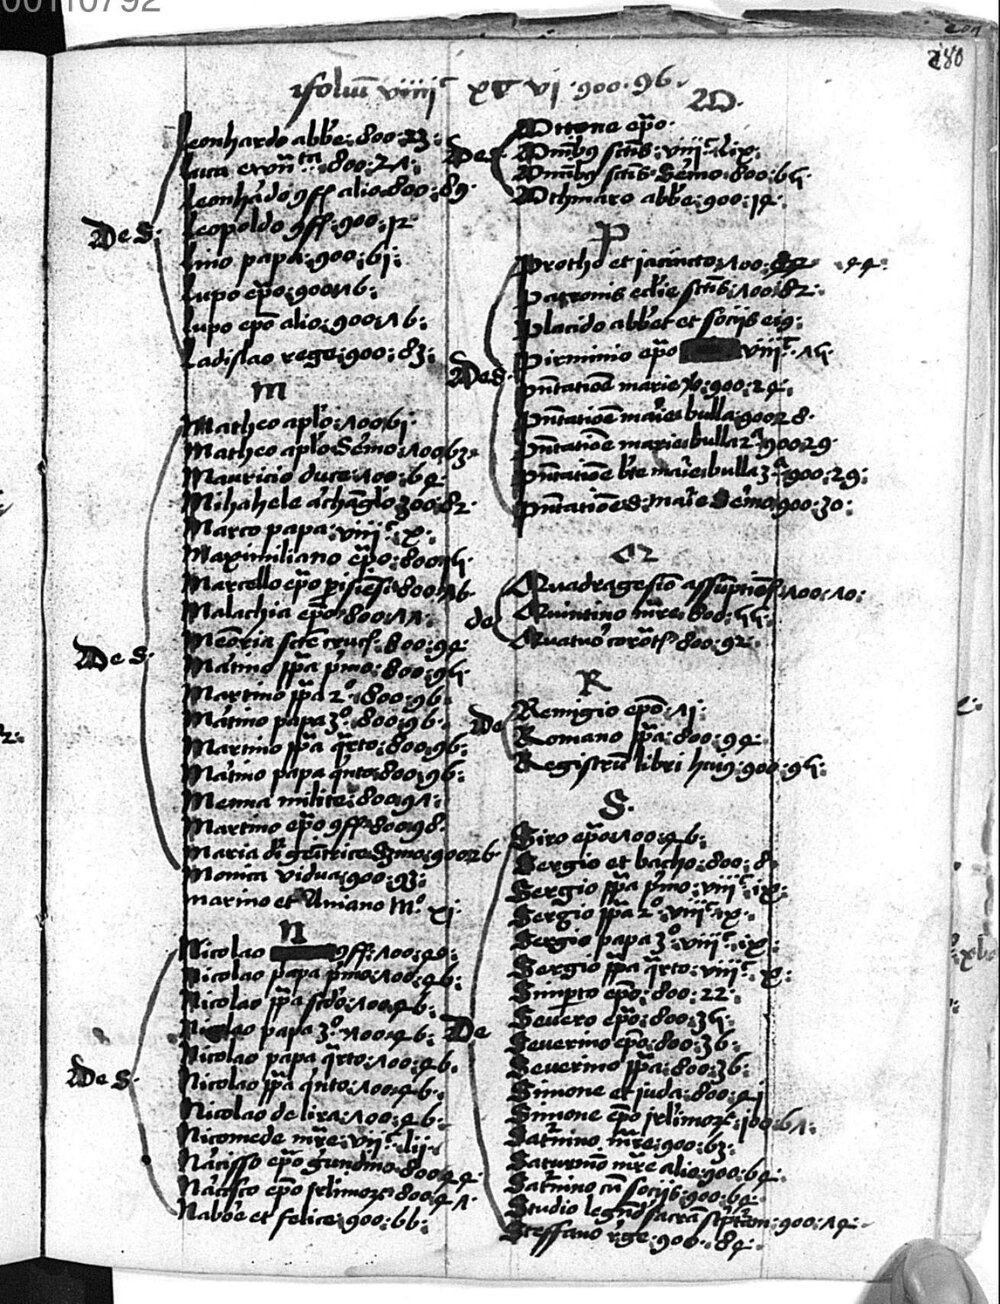 00110792
280
folium viiii^c xc vi 900.96.
De s.
Leonhardo abbe: 800:23:
Luca evan^ta: 800:21:
Leonhado 9ff alio: 800:89:
Leopoldo 9ff: 900:12
Lino papa: 900:61:
Lupo epo: 900:16:
Lupo epo alio: 900:16:
Ladislao rege: 900:83:
M
De s.
Matheo aplo: 100:61:
Matheo aplo Sermo: 100:63:
Mauricio duce: 100:64:
Mihahele achaglo: 300:82:
Marco papa: viiii^c: ix:
Maximiliano epo: 800:15:
Marcello epo pisiesi: 800:16.
Malachia epo: 800:11:
Meoria scte crucis: 800:94:
Matino ppa pmo: 800:95:
Martino ppa 2°: 800:96.
Matino papa 3°: 800:96.
Martino ppa qrto: 800:96:
Matino papa qnto: 800:96:
Menna milite: 800:91:
Martino epo 9ff: 800:98.
Maria di genitrice Sermo: 900:26
Monica vidua: 900:93:
Marino et Aniano M°. xi
N
De s.
Nicolao 9ff: 100:40:
Nicolao papa pmo: 100:46:
Nicolao ppa scdo: 100:46:
Nicolao papa 3°: 100:46:
Nicolao papa qrto: 100:46:
Nicolao ppa qnto: 100:46:
Nicolao de lira: 100:46:
Nicomede mre: vii^c: lii:
Nacisso epo gundino: 800:44:
Nacisso epo jrlimor: 800:41
Nabore et felice: 900:66:
O.
De s.
Ottone epo.
Omibus sctis: viii^c: lix:
Omibus sctis Sermo: 800:65:
Othmaro abbe: 900:14:
P
De s.
Protho et jacincto: 100: 44:
Patronis eclie sctis: 100:82:
Placido abbet et sociis ei9:
Pirminio epo viiii^c: 15:
Pntatioe marie v: 900:24:
Pntatioe marie bulla: 900:28.
Pntatioe marie bulla 2ª: 900:29
Pntatioe bte marie bulla 3ª: 900:29:
Pntatioe s: marie Sermo: 900:30:
Q
de
Quadragesio assuptiois: 100:10:
Quintino mre: 800:55:
Quatuor coronatis: 800:92:
R
De
Remigio epo: 11:
Romano ppa: 800:94:
Registru libri hui9: 900:95:
S.
De
Siro epo: 100:46:
Sergio et bacho: 800:8:
Sergio ppa pmo: viiii^c: ix:
Sergio ppa 2°: viiii^c: ix:
Sergio papa 3°: viiii^c: ix:
Sergio ppa qrto: viiii^c: x:
Simpto epo: 800:22:
Severo epo: 800:35:
Severino epo: 800:36:
Severino ppa: 800:36:
Simone et juda: 800:41
Simone epo jrlimor: 61:
Satnino mre: 900:63:
Saturnino mre alio: 900:64:
Satnino cu sociis: 900:64:
Studio legendi sacra sciptura: 900:14:
Steffano rege: 900:84: